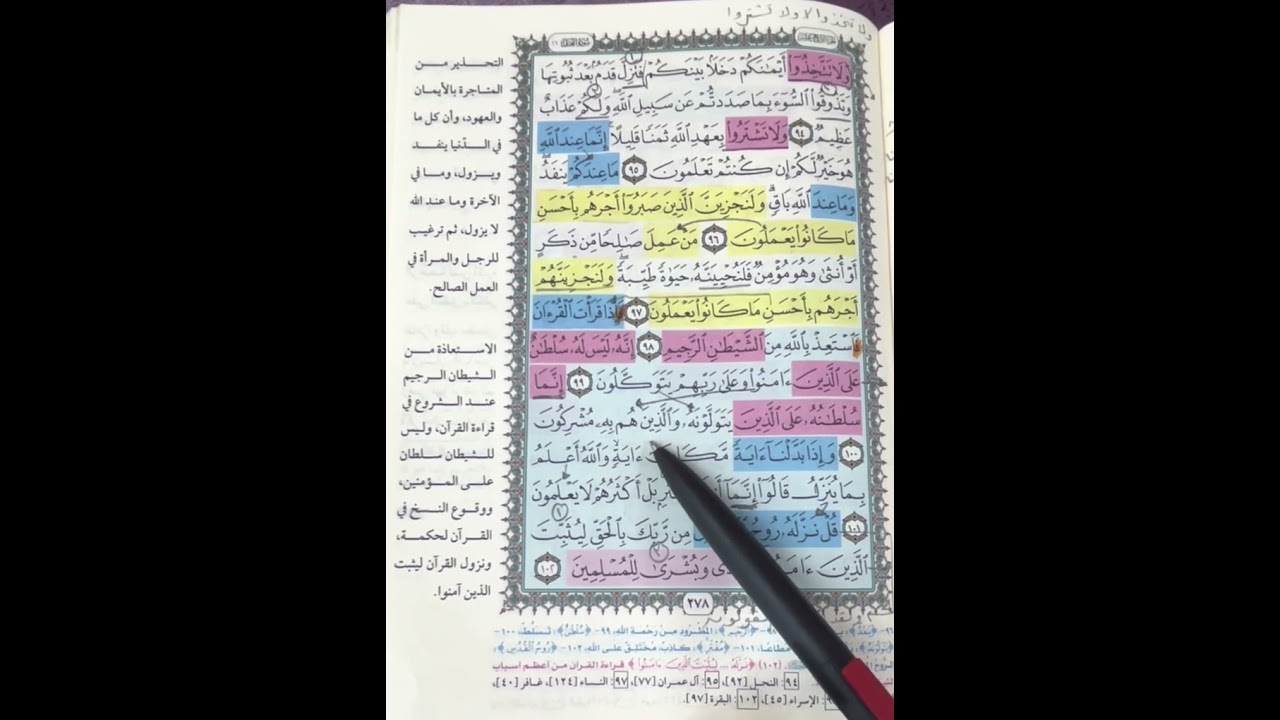 ولا تتخذوا الا ولا تشتروا
سورة النحل ١٦
وَلَا تَتَّخِذُوٓا۟ أَيْمَـٰنَكُمْ دَخَلًۢا بَيْنَكُمْ فَتَزِلَّ قَدَمٌۢ بَعْدَ ثُبُوتِهَا
وَتَذُوقُوا۟ ٱلسُّوٓءَ بِمَا صَدَدتُّمْ عَن سَبِيلِ ٱللَّهِ وَلَكُمْ عَذَابٌ
عَظِيمٌ ٩٤ وَلَا تَشْتَرُوا۟ بِعَهْدِ ٱللَّهِ ثَمَنًا قَلِيلًا إِنَّمَا عِندَ ٱللَّهِ
هُوَ خَيْرٌ لَّكُمْ إِن كُنتُمْ تَعْلَمُونَ ٩٥ مَا عِندَكُمْ يَنفَدُ
وَمَا عِندَ ٱللَّهِ بَاقٍ وَلَنَجْزِيَنَّ ٱلَّذِينَ صَبَرُوٓا۟ أَجْرَهُم بِأَحْسَنِ
مَا كَانُوا۟ يَعْمَلُونَ ٩٦ مَنْ عَمِلَ صَـٰلِحًا مِّن ذَكَرٍ
أَوْ أُنثَىٰ وَهُوَ مُؤْمِنٌ فَلَنُحْيِيَنَّهُۥ حَيَوٰةً طَيِّبَةً وَلَنَجْزِيَنَّهُمْ
أَجْرَهُم بِأَحْسَنِ مَا كَانُوا۟ يَعْمَلُونَ ٩٧ فَإِذَا قَرَأْتَ ٱلْقُرْءَانَ
فَٱسْتَعِذْ بِٱللَّهِ مِنَ ٱلشَّيْطَـٰنِ ٱلرَّجِيمِ ٩٨ إِنَّهُۥ لَيْسَ لَهُۥ سُلْطَـٰنٌ
عَلَى ٱلَّذِينَ ءَامَنُوا۟ وَعَلَىٰ رَبِّهِمْ يَتَوَكَّلُونَ ٩٩ إِنَّمَا
سُلْطَـٰنُهُۥ عَلَى ٱلَّذِينَ يَتَوَلَّوْنَهُۥ وَٱلَّذِينَ هُم بِهِۦ مُشْرِكُونَ
١٠٠ وَإِذَا بَدَّلْنَآ ءَايَةً ءَايَةٍ وَٱللَّهُ أَعْلَمُ
بِمَا يُنَزِّلُ قَالُوٓا۟ إِنَّمَآ بَلْ أَكْثَرُهُمْ لَا يَعْلَمُونَ
١٠١ قُلْ نَزَّلَهُۥ رُوحُ مِن رَّبِّكَ بِٱلْحَقِّ لِيُثَبِّتَ
ٱلَّذِينَ وَبُشْرَىٰ لِلْمُسْلِمِينَ ١٠٢
٢٧٨
التحذير من
المتاجرة بالأيمان
والعهود، وأن كل ما
في الدنيا ينفد
ويزول، وما في
الآخرة وما عند الله
لا يزول، ثم ترغيب
للرجل والمرأة في
العمل الصالح.
الاستعاذة من
الشيطان الرجيم
عند الشروع في
قراءة القرآن، وليس
للشيطان سلطان
على المؤمنين،
ووقوع النسخ في
القرآن لحكمة،
ونزول القرآن ليثبت
الذين آمنوا.
٩٦- ﴿يَنفَدُ﴾: ﴿الرَّجِيمِ﴾: المَطْرُودِ مِن رَحْمَةِ اللهِ، ٩٩- ﴿سُلْطَانٌ﴾: تَسَلُّطٌ، ١٠٠-
١٠١- ﴿مُفْتَرٍ﴾: كَاذِبٌ مُخْتَلِقٌ عَلَى اللهِ، ١٠٢- ﴿رُوحُ الْقُدُسِ﴾:
(١٠٢) ﴿نَزَّلَهُ ... لِيُثَبِّتَ الَّذِينَ ءَامَنُوا﴾ قراءة القرآن من أعظم أسباب
٩٤: النحل [٩٢]، ٩٥: آل عمران [٧٧]، ٩٧: النساء [١٢٤]، غافر [٤٠]،
الإسراء [٤٥]، ١٠٢: البقرة [٩٧].